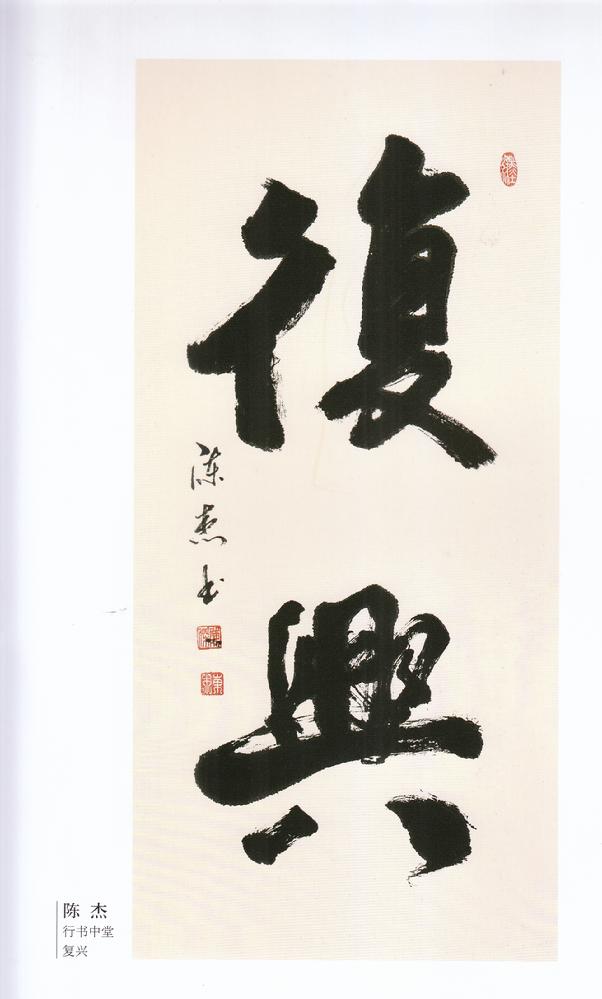 復興
陈杰书
陈 杰
行书中堂
复兴